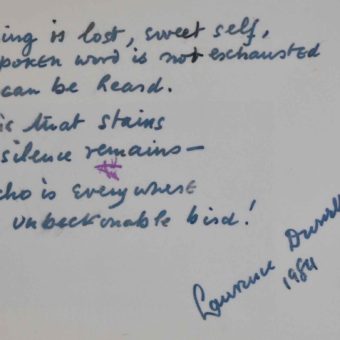 ing is lost, sweet self,
poken word is not exhausted
can be heard.
ic that stains
silence remains—
cho is everywhere
unbeckonable bird!
Lawrence Durrell
1984